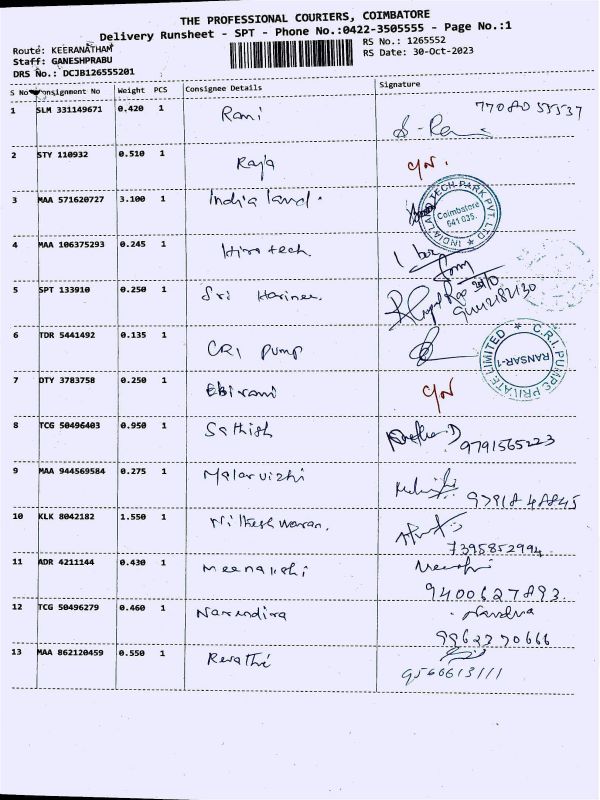 THE PROFESSIONAL COURIERS, COIMBATORE
Delivery Runsheet - SPT - Phone No.:0422-3505555 - Page No.:1
Route: KEERANATHAM
RS No.: 1265552
Staff: GANESHPRABU
RS Date: 30-Oct-2023
DRS No.: DCJB126555201
S No Consignment No Weight PCS Consignee Details Signature
1 SLM 331149671 0.420 1 Rami
2 STY 110932 0.510 1 Raja
3 MAA 571620727 3.100 1 India land.
INDIA LAND TECH PARK PVT. LTD
Coimbatore
641 035.
4 MAA 106375293 0.245 1 Hiro tech
5 SPT 133910 0.250 1 Sri Harinee
6 TDR 5441492 0.135 1 CRI pump
C.R.I. PUMPS PRIVATE LIMITED
RANSAR-1
7 DTY 3783758 0.250 1 Ebirami
8 TCG 50496403 0.950 1 Sathish 9791565223
9 MAA 944569584 0.275 1 Malarvizhi
10 KLK 8042182 1.550 1 Nitheshwaran. 7395852994
11 ADR 4211144 0.430 1 Meenakshi 9400627893.
12 TCG 50496279 0.460 1 Narendira
9962370666
13 MAA 862120459 0.550 1 Revathi 9566613111